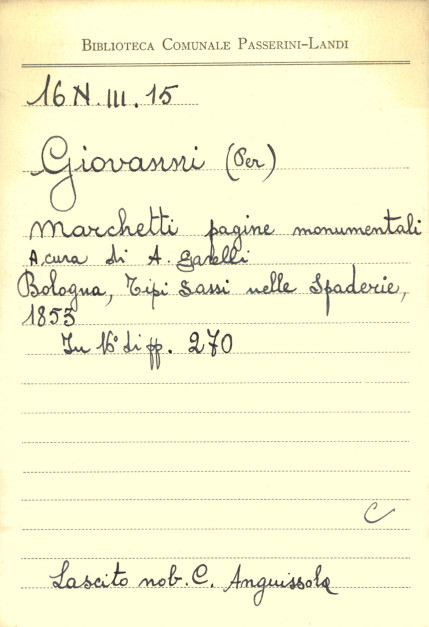 BIBLIOTECA COMUNALE PASSERINI-LANDI
16 N. III. 15
Giovanni (Per)
Marchetti pagine monumentali
A cura di A. Garelli
Bologna, Tipi Sassi nelle Spaderie,
1853
In 16° di pp. 270
C
Lascito nob. C. Anguissola